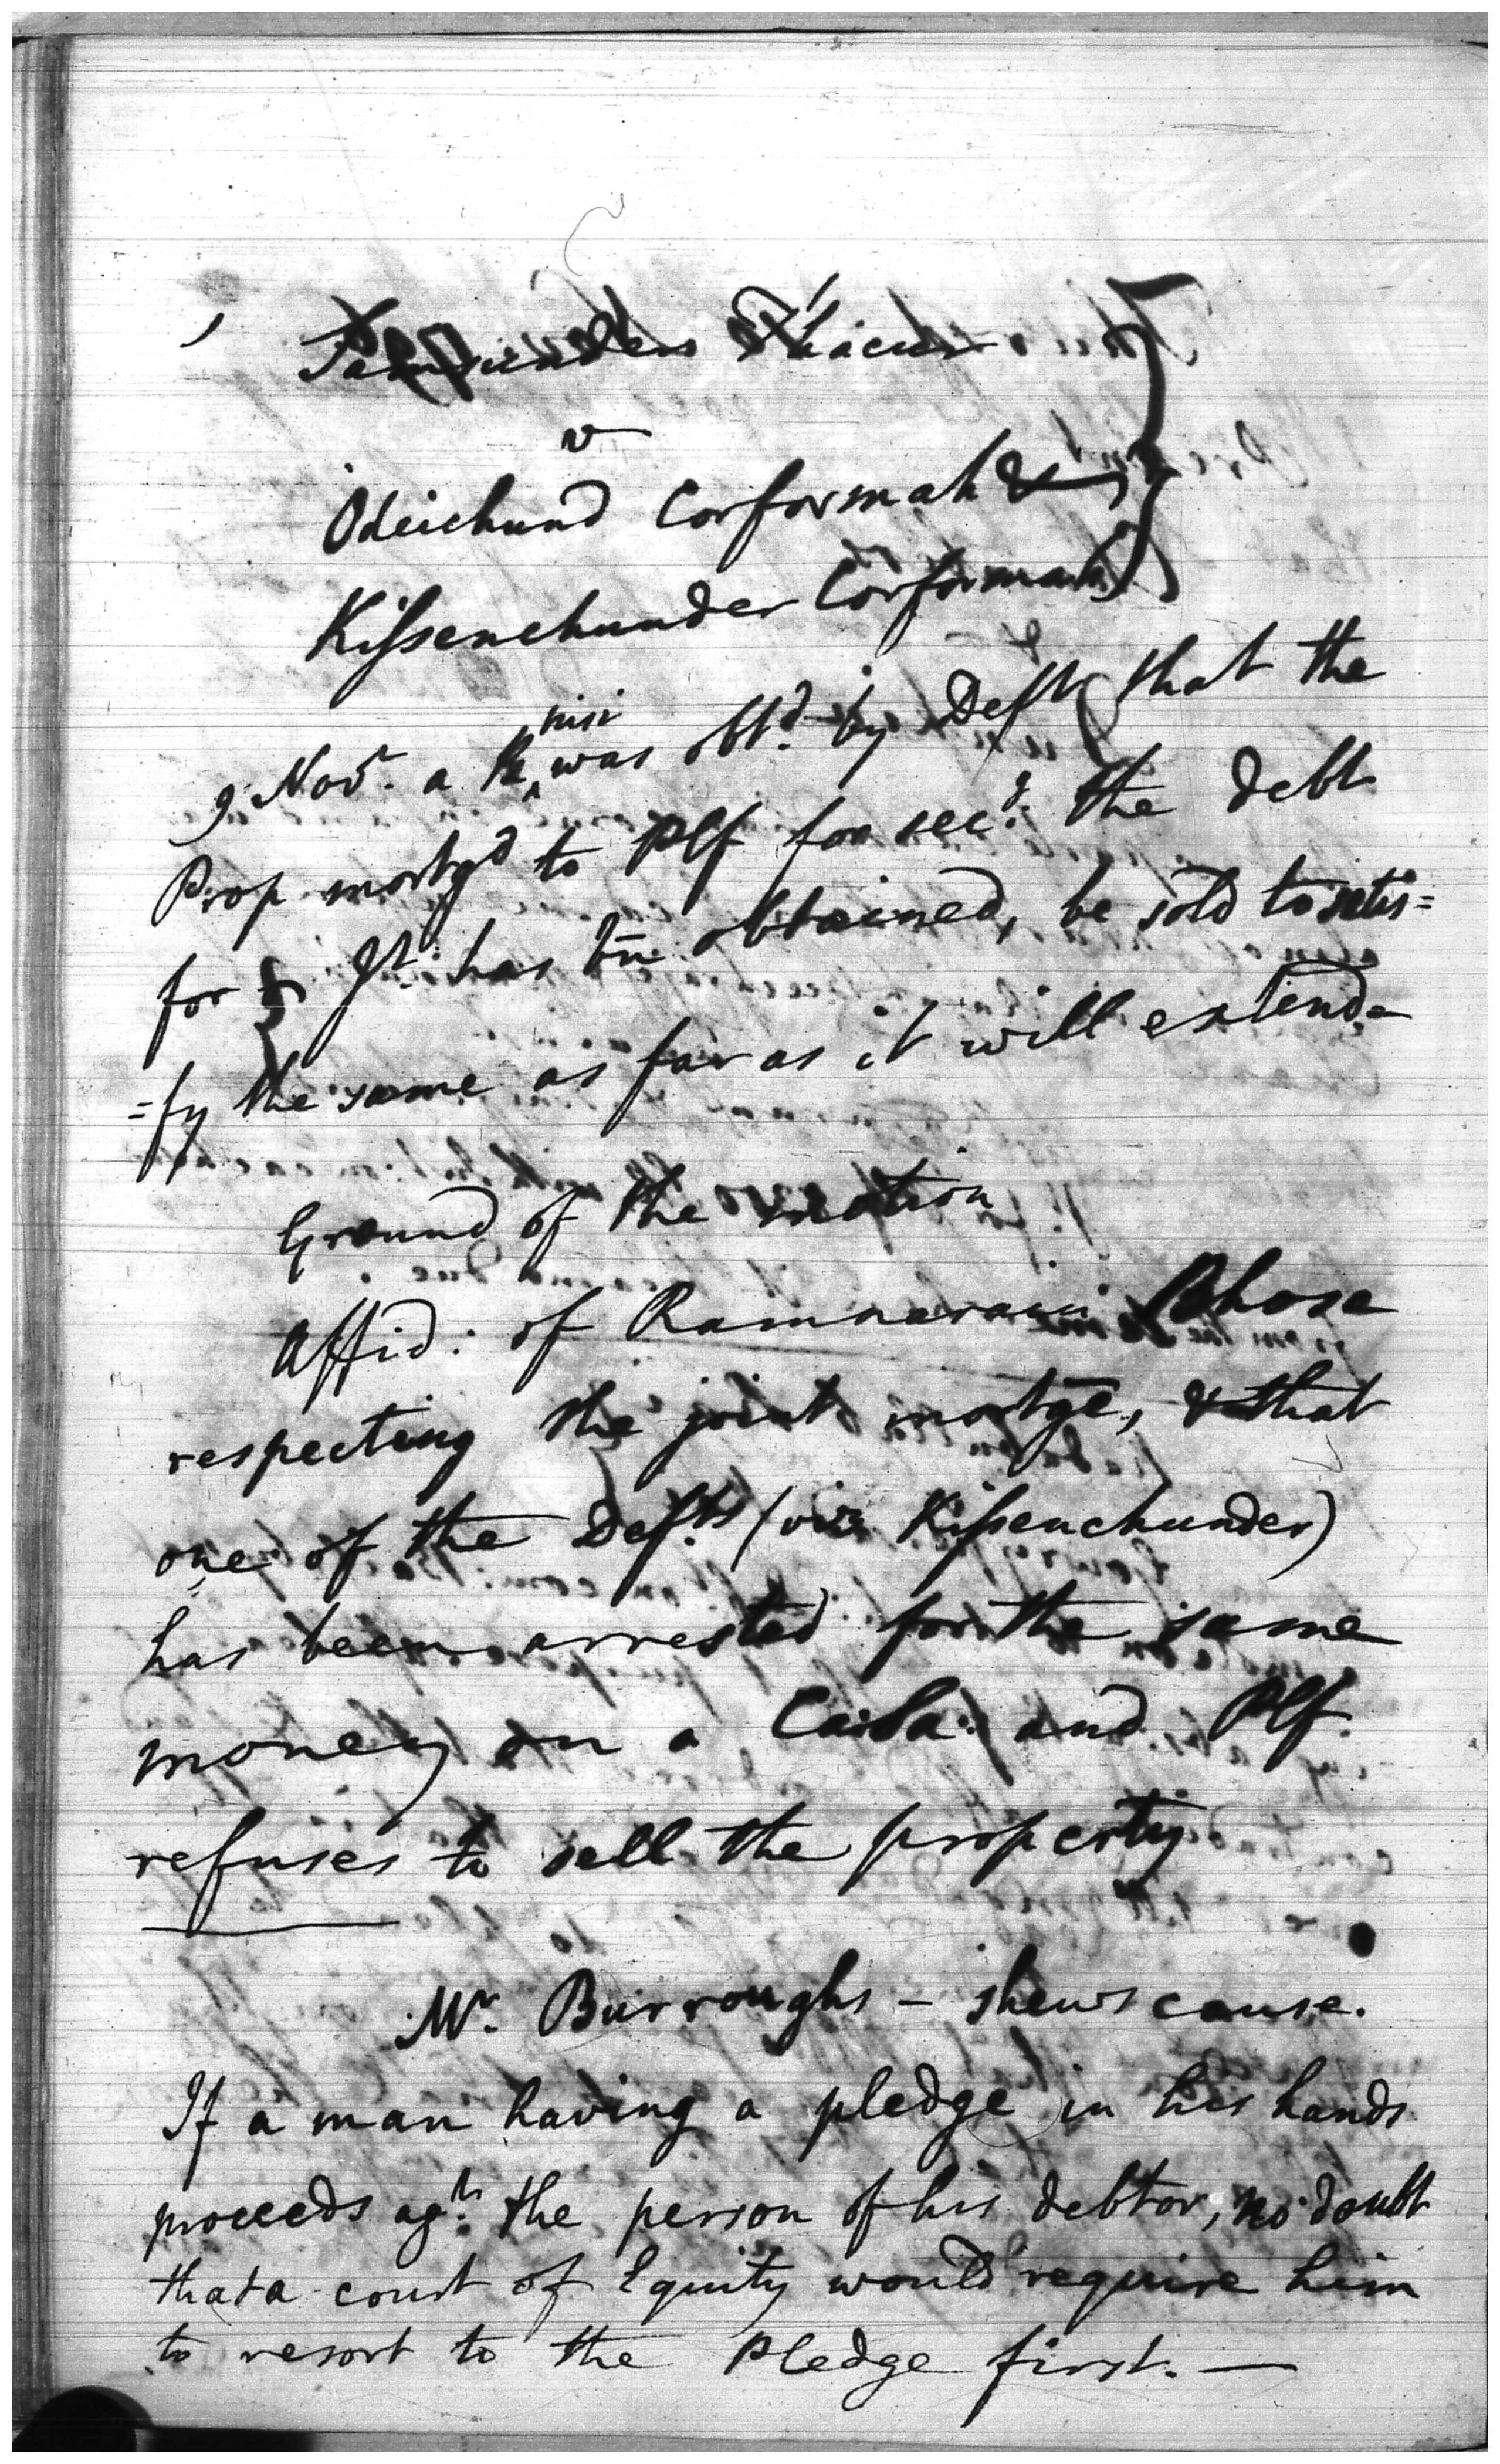 v
Odeichund Corformah &
Kissenchunder Corformah
9 Novr. a R nisi was obtd. by Deft that the
Prop mortgd to Plf for secy. the debt
for Jt. has bn obtained, be sold to satis=
=fy the same as far as it will extend.
Ground of the motion
Affid: of Ramnerain Ghose
respecting the joint mortge, & that
one of the Defts (viz Kissenchunder)
has been arrested for the same
money on a CaSa: and Plf.
refuses to sell the property
Mr. Burroughs – shews cause.
If a man having a pledge in his hands
proceeds agt. the person of his debtor, no doubt
that a court of Equity would require him
to resort to the Pledge first. —